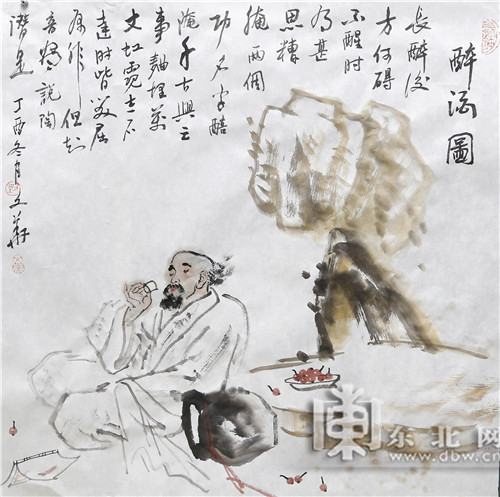 醉酒圖
長醉後
方何碍
不醒时
有甚
思糟
腌两個
功名字醅
渰千古興亡
事麯埋萬
丈虹霓志不
達时皆笑屈
原非但知
音盡說陶
潛是 丁酉冬月
东北网
www.dbw.cn